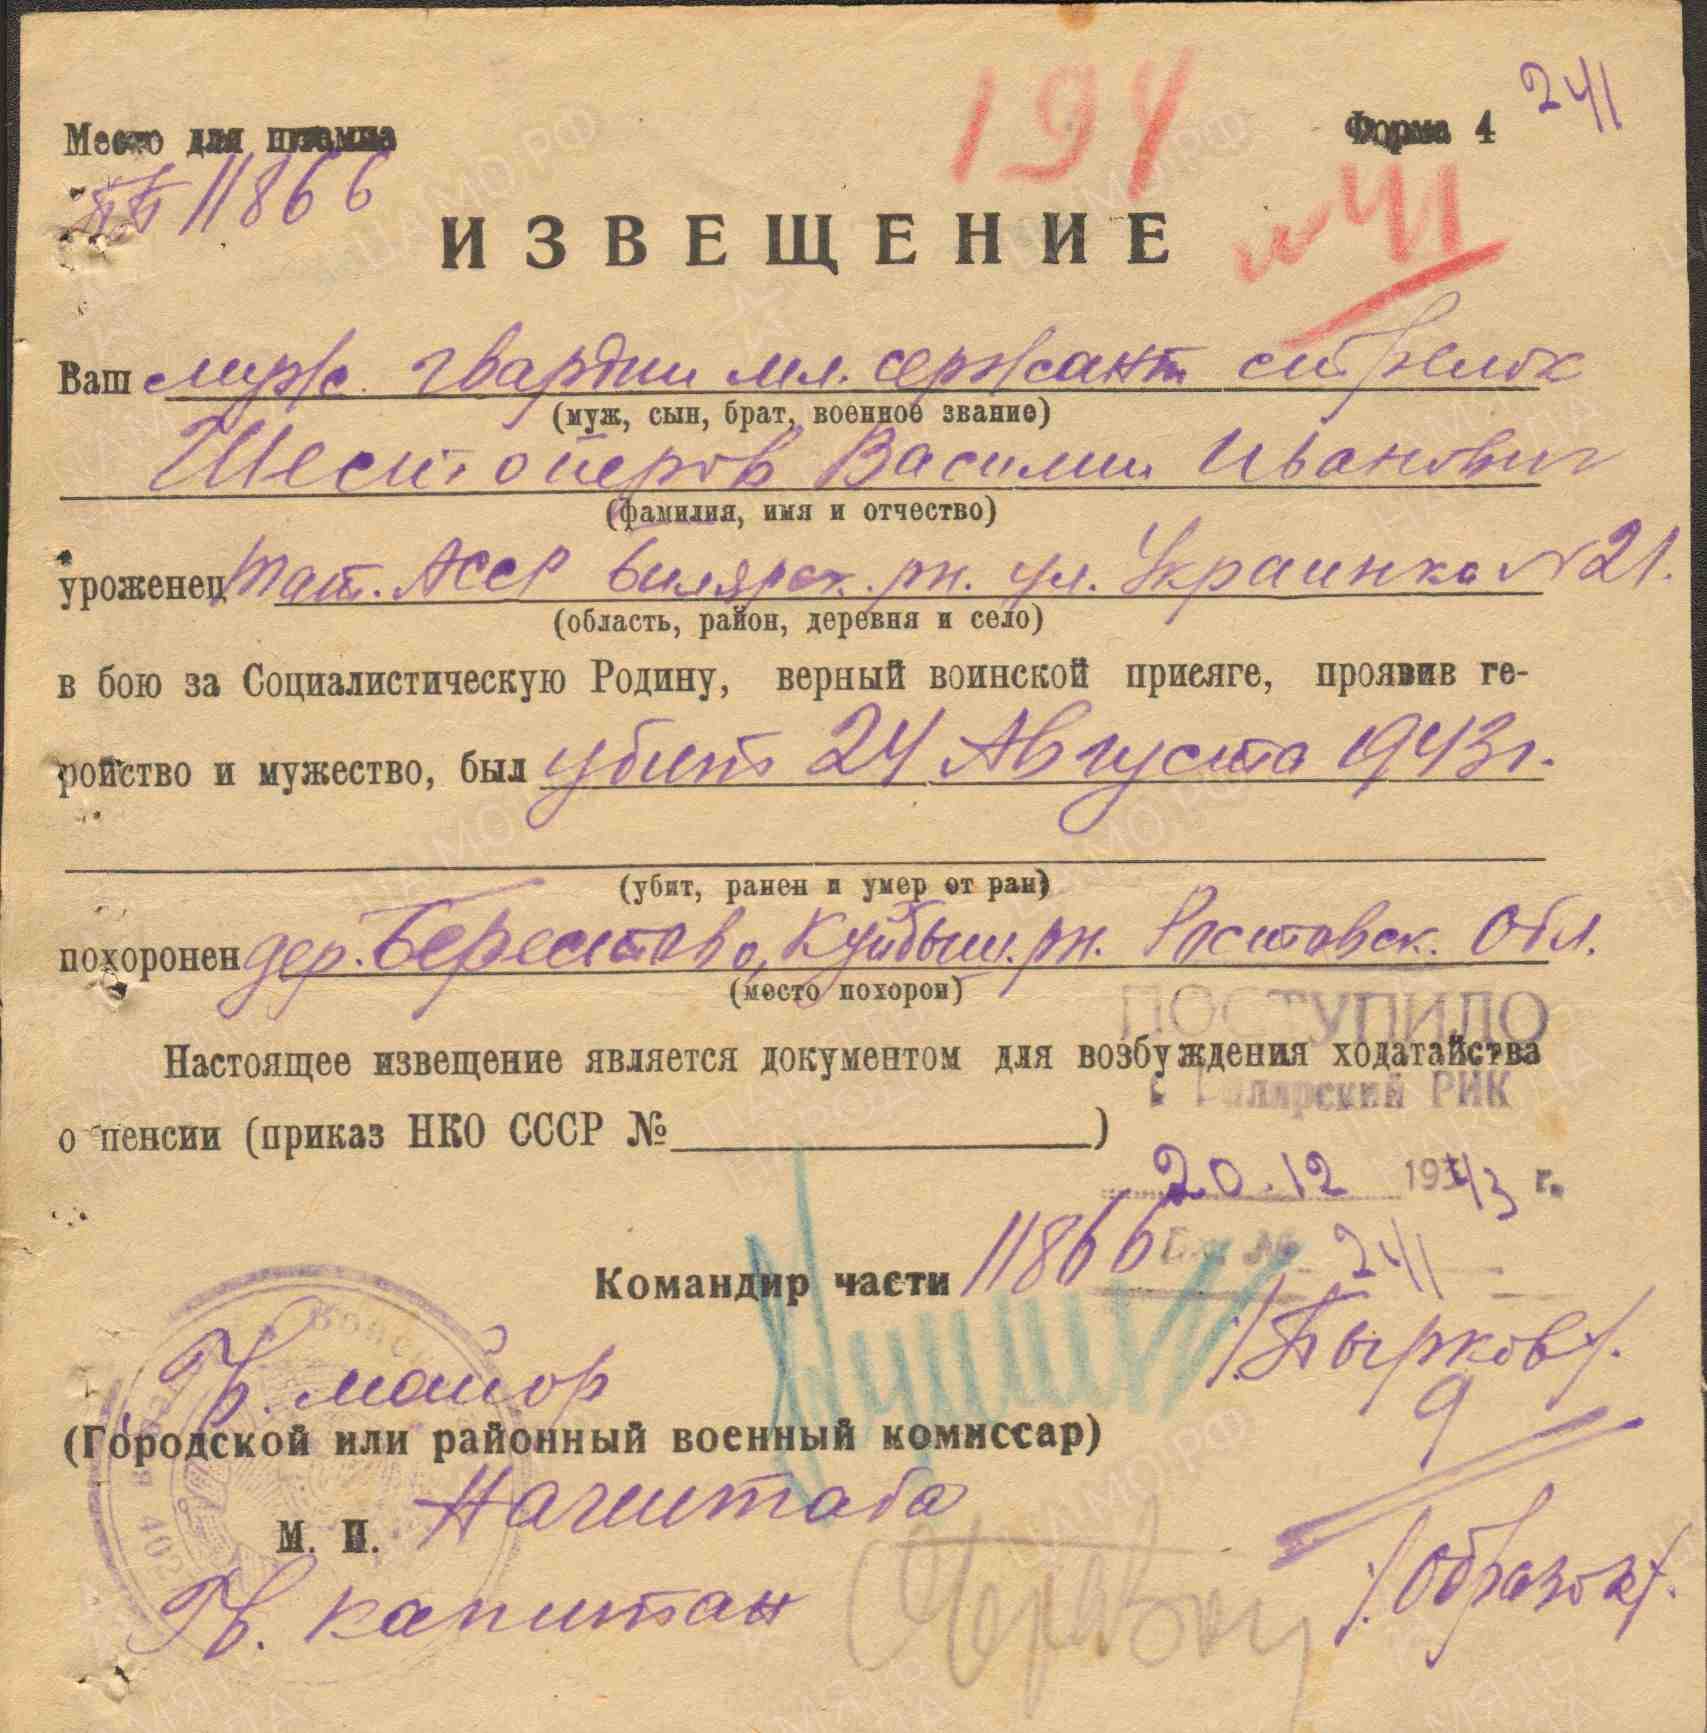 241
194
Место для штампа
Форма 4
11866
и 41
ИЗВЕЩЕНИЕ
Ваш муж гвардии мл. сержант стрелок
(муж, сын, брат, военное звание)
Шестоперов Василий Иванович
(фамилия, имя и отчество)
уроженец Тат. АССР Билярск. рн. ул. Украинка №21.
(область, район, деревня и село)
в бою за Социалистическую Родину, верный воинской присяге, проявив ге-
ройство и мужество, был убит 24 Августа 1943г.
(убит, ранен и умер от ран)
похоронен дер. Берестово, Куйбыш. рн. Ростовск. Обл.
(место похорон)
ПОСТУПИЛО
Настоящее извещение является документом для возбуждения ходатайства
Билярский РИК
о пенсии (приказ НКО СССР № )
20.12 1943 г.
Вх. № 241
Командир части 11866
Гв. майор /Пырков/.
9
(Городской или районный военный комиссар)
Начштаба
М. П.
Гв. капитан /Образок/.
ЦАМО.РФ